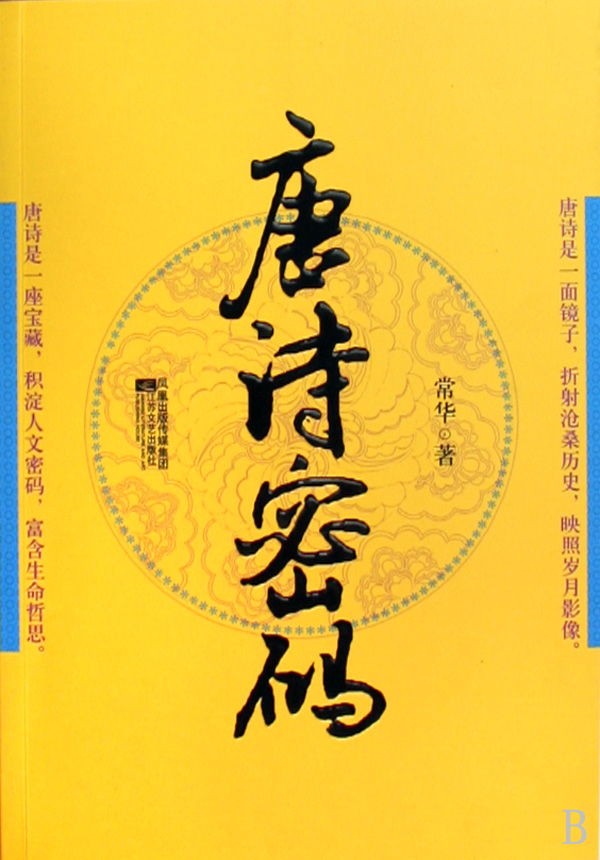 唐诗密码
唐诗是一面镜子，折射沧桑历史，映照岁月影像。
常华⊙著
凤凰出版传媒集团
江苏文艺出版社
唐诗是一座宝藏，积淀人文密码，富含生命哲思。
B